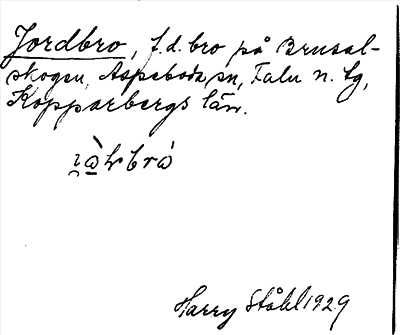 Jordbro, f.d. bro på Brusal-
skogen, Aspeboda sn, Falu n. tg,
Kopparbergs län.
Harry Ståhl 1929